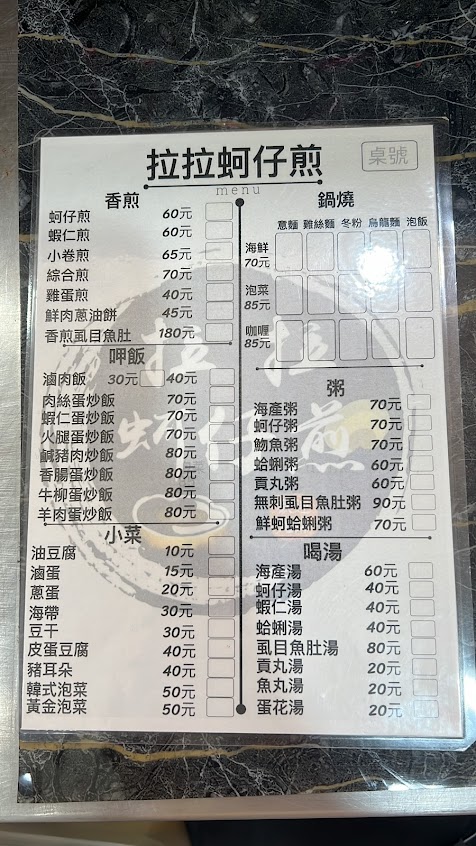 拉拉蚵仔煎
桌號
menu
香煎
蚵仔煎 60元
蝦仁煎 60元
小卷煎 65元
綜合煎 70元
雞蛋煎 40元
鮮肉蔥油餅 45元
香煎虱目魚肚 180元
呷飯
滷肉飯 30元 40元
肉絲蛋炒飯 70元
蝦仁蛋炒飯 70元
火腿蛋炒飯 70元
鹹豬肉炒飯 80元
香腸蛋炒飯 80元
牛柳蛋炒飯 80元
羊肉蛋炒飯 80元
小菜
油豆腐 10元
滷蛋 15元
蔥蛋 20元
海帶 30元
豆干 30元
皮蛋豆腐 40元
豬耳朵 40元
韓式泡菜 50元
黃金泡菜 50元
鍋燒
意麵 雞絲麵 冬粉 烏龍麵 泡飯
海鮮
70元
泡菜
85元
咖喱
85元
粥
海產粥 70元
蚵仔粥 70元
魩魚粥 70元
蛤蜊粥 60元
貢丸粥 60元
無刺虱目魚肚粥 90元
鮮蚵蛤蜊粥 70元
喝湯
海產湯 60元
蚵仔湯 40元
蝦仁湯 40元
蛤蜊湯 40元
虱目魚肚湯 80元
貢丸湯 20元
魚丸湯 20元
蛋花湯 20元
拉拉
蚵仔煎